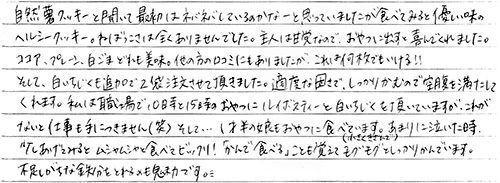 自然薯クッキーと聞いて最初はネバネバしているのかなーと思っていましたが食べてみると優しい味の
ヘルシークッキー。ねばっこさは全くありませんでした。主人は甘党なので、おやつに出すと喜んでくれました。
ココア、プレーン、白ごまどれも美味。他の方の口コミにもありましたが、これは何枚でもいける!!
そして、白いちじくも追加で2袋注文させて頂きました。適度な固さで、しっかりかむので空腹を満たして
くれます。私は職場で10時と15時のおやつにルイボスティーと白いちじくを頂いていますが、これが
ないと仕事も手につきません(笑) そして…1才半の娘もおやつに食べています。あまりに泣いた時、
(小さくきざんで)
1ケあげてみるとムシャムシャと食べビックリ!「かんで食べる」ことも覚えてモグモグとしっかりかんでいます。
不足しがちな鉄分をとれるのも魅力です。